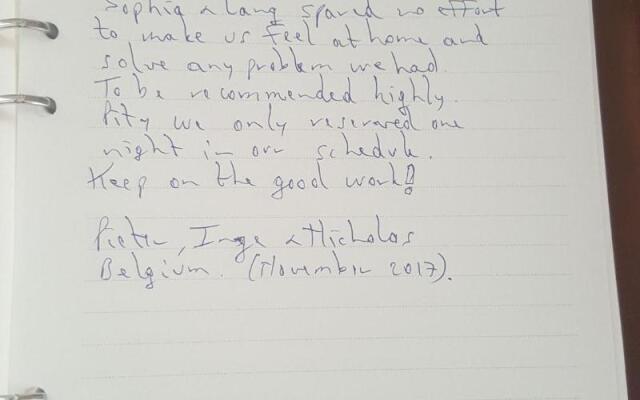 Sophia & Lang spared no effort
to make us feel at home and
solve any problem we had.
To be recommended highly.
Pity we only reserved one
night in our schedule.
Keep on the good work!
Pieter, Inge & Nicholas
Belgium. (November 2017).